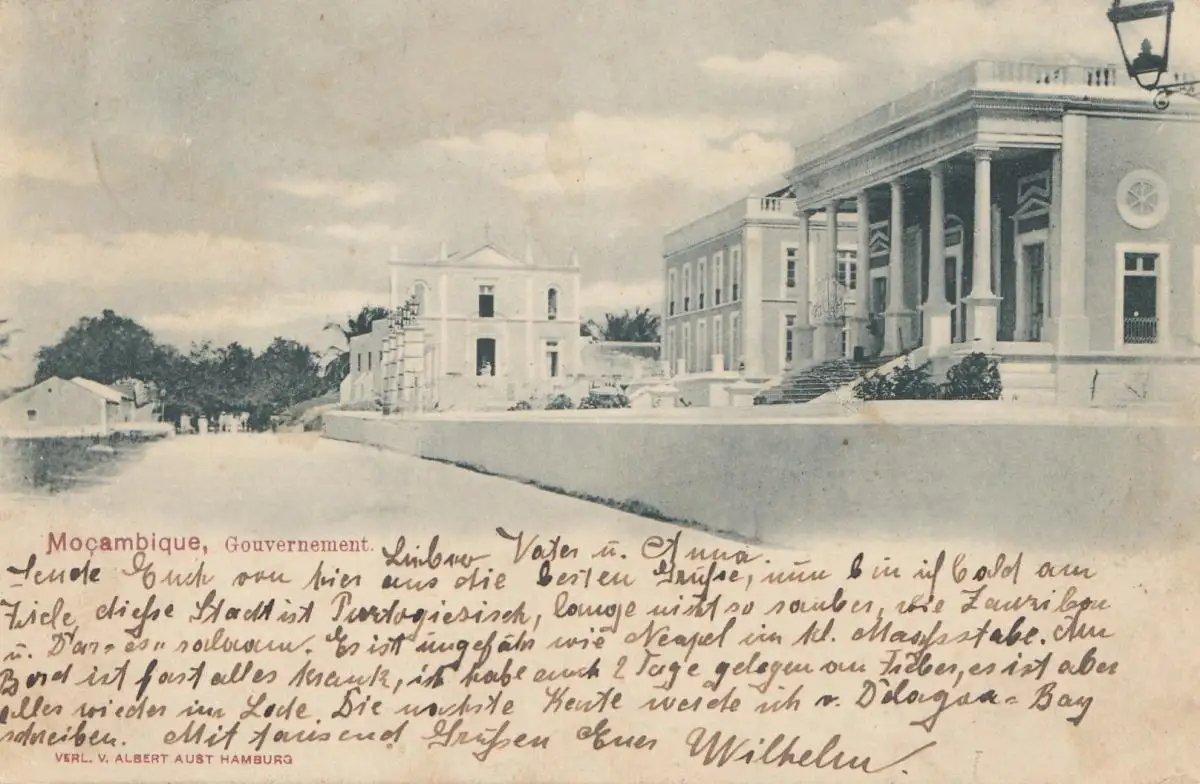 Moçambique, Gouvernement.
Lieber Vater u. Anna
sende Euch von hier aus die besten Grüße, nun bin ich bald am
Ziele, dieße Stadt ist Purtogiesisch, lange nicht so sauber, wie Zanzibar
u. Dar=es=salaam. Es ist ungefähr wie Neapel im kl. Maaßstabe. Am
Bord ist fast alles krank, ich habe auch 2 Tage gelegen an Fieber, es ist aber
alles wieder im Lode. Die nächste Karte werde ich v. Delagoa=Bay
schreiben. Mit tausend Grüßen Euer Wilhelm.
VERL. V. ALBERT AUST HAMBURG